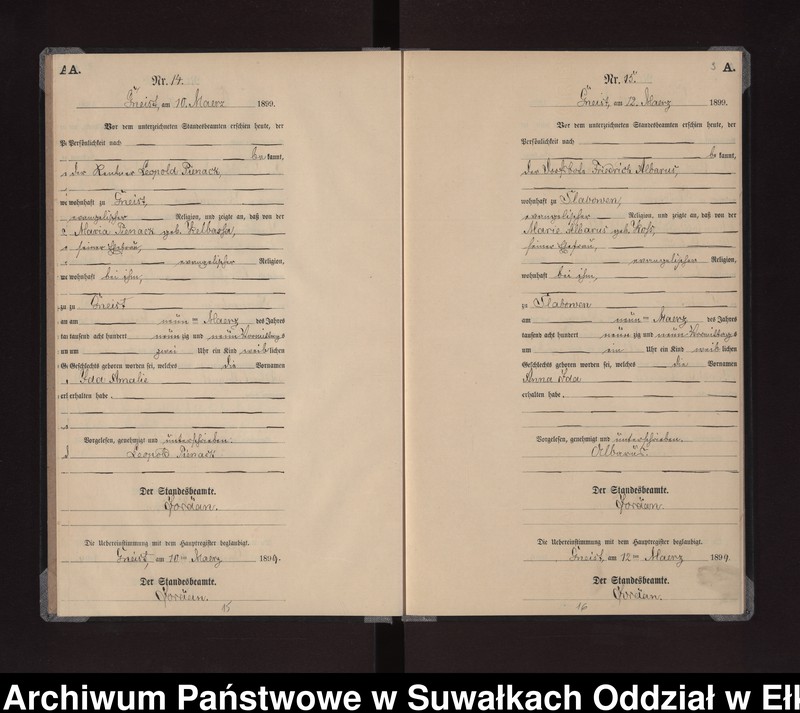 A A.
Nr. 14.
Gneist, am 10. Maerz 1899.
Vor dem unterzeichneten Standesbeamten erschien heute, der
Persönlichkeit nach
be kannt,
der Rentner Leopold Pienack,
wohnhaft zu Gneist,
evangelischer Religion, und zeigte an, daß von der
Maria Pienack geb. Kelbassa,
seiner Ehefrau,
evangelischer Religion,
wohnhaft bei ihm,
zu Gneist
am neun ten Maerz des Jahres
tausend acht hundert neun zig und neun Vormittags
um zwei Uhr ein Kind weib lichen
Geschlechts geboren worden sei, welches die Vornamen
Ida Amalie
erhalten habe.
Vorgelesen, genehmigt und unterschrieben.
Leopold Pienack
Der Standesbeamte.
Jordan.
Die Uebereinstimmung mit dem Hauptregister beglaubigt.
Gneist, am 10ten Maerz 1899.
Der Standesbeamte.
Jordan.
15
3 A.
Nr. 15.
Gneist, am 12. Maerz 1899.
Vor dem unterzeichneten Standesbeamten erschien heute, der
Persönlichkeit nach
be kannt,
der Friedrich Albarus,
wohnhaft zu Slabowen,
evangelischer Religion, und zeigte an, daß von der
Marie Albarus geb.
seiner Ehefrau,
evangelischer Religion,
wohnhaft bei ihm,
zu Slabowen
am neun ten Maerz des Jahres
tausend acht hundert neun zig und neun Vormittags
um ein Uhr ein Kind weib lichen
Geschlechts geboren worden sei, welches die Vornamen
Anna Ida
erhalten habe.
Vorgelesen, genehmigt und unterschrieben.
Albarus.
Der Standesbeamte.
Jordan.
Die Uebereinstimmung mit dem Hauptregister beglaubigt.
Gneist, am 12ten Maerz 1899.
Der Standesbeamte.
Jordan.
16
Archiwum Państwowe w Suwałkach Oddział w Ełk